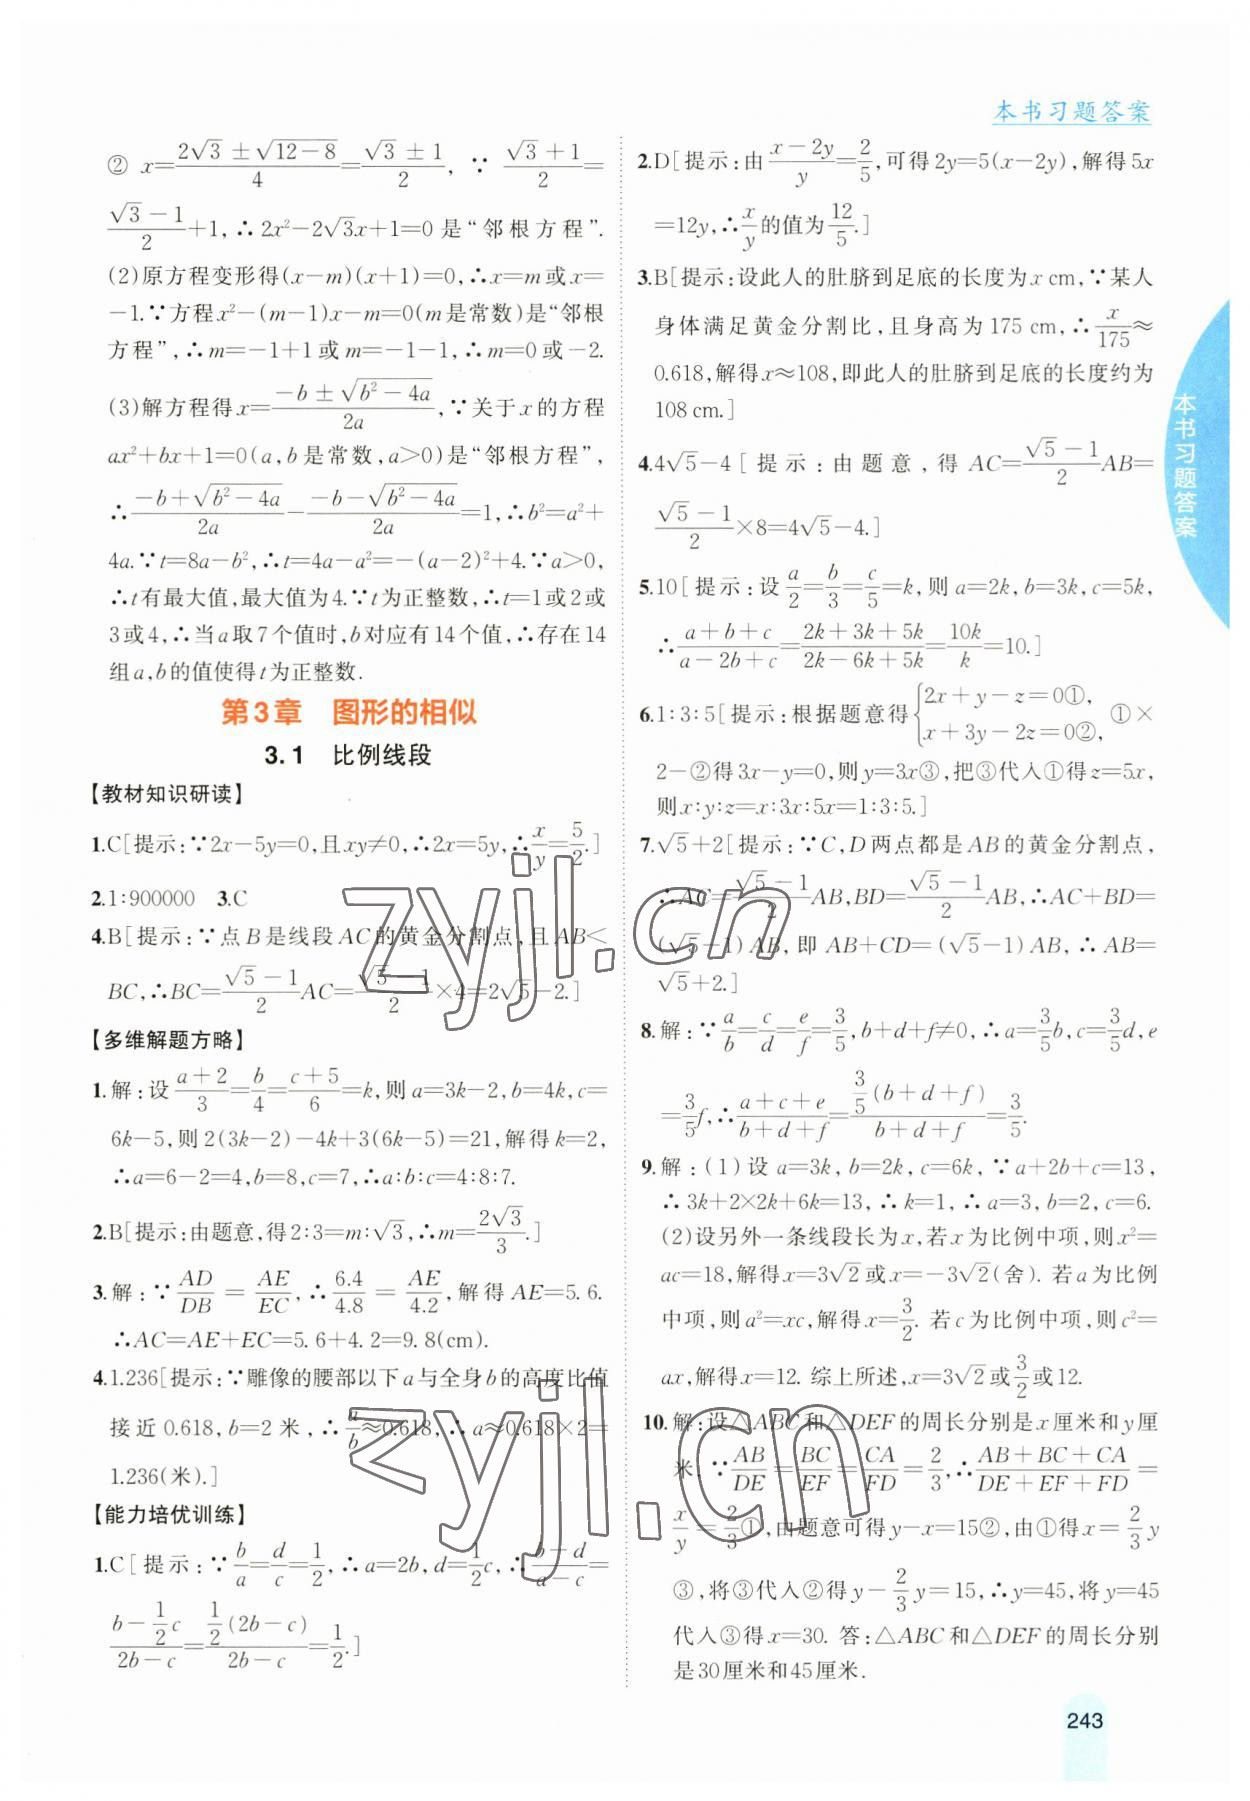 本书习题答案
② x=(2√3±√(12-8))/4=(√3±1)/2, ∵ (√3+1)/2=
(√3-1)/2+1,∴2x²-2√3x+1=0是“邻根方程”.
(2)原方程变形得(x-m)(x+1)=0,∴x=m或x=
-1.∵方程x²-(m-1)x-m=0(m是常数)是“邻根
方程”,∴m=-1+1或m=-1-1,∴m=0或-2.
(3)解方程得x=(-b±√(b²-4a))/2a,∵关于x的方程
ax²+bx+1=0(a,b是常数,a>0)是“邻根方程”,
∴(-b+√(b²-4a))/2a-(-b-√(b²-4a))/2a=1,∴b²=a²+
4a.∵t=8a-b²,∴t=4a-a²=-(a-2)²+4.∵a>0,
∴t有最大值,最大值为4.∵t为正整数,∴t=1或2或
3或4,∴当a取7个值时,b对应有14个值,∴存在14
组a,b的值使得t为正整数.
第3章 图形的相似
3.1 比例线段
【教材知识研读】
1.C[提示:∵2x-5y=0,且xy≠0,∴2x=5y,∴x/y=5/2.]
2.1∶900000 3.C
4.B[提示:∵点B是线段AC的黄金分割点,且AB<
BC,∴BC=(√5-1)/2AC=(√5-1)/2×4=2√5-2.]
【多维解题方略】
1.解:设(a+2)/3=b/4=(c+5)/6=k,则a=3k-2,b=4k,c=
6k-5,则2(3k-2)-4k+3(6k-5)=21,解得k=2,
∴a=6-2=4,b=8,c=7,∴a∶b∶c=4∶8∶7.
2.B[提示:由题意,得2∶3=m∶√3,∴m=2√3/3.]
3.解:∵AD/DB=AE/EC,∴6.4/4.8=AE/4.2,解得AE=5.6.
∴AC=AE+EC=5.6+4.2=9.8(cm).
4.1.236[提示:∵雕像的腰部以下a与全身b的高度比值
接近0.618,b=2米,∴a/b≈0.618,∴a≈0.618×2=
1.236(米).]
【能力培优训练】
1.C[提示:∵b/a=d/c=1/2,∴a=2b,d=1/2c,∴(b-d)/(a-c)=
(b-1/2c)/(2b-c)=(1/2(2b-c))/(2b-c)=1/2.]
2.D[提示:由(x-2y)/y=2/5,可得2y=5(x-2y),解得5x
=12y,∴x/y的值为12/5.]
3.B[提示:设此人的肚脐到足底的长度为x cm,∵某人
身体满足黄金分割比,且身高为175 cm,∴x/175≈
0.618,解得x≈108,即此人的肚脐到足底的长度约为
108 cm.]
4.4√5-4[提示:由题意,得AC=(√5-1)/2AB=
(√5-1)/2×8=4√5-4.]
5.10[提示:设a/2=b/3=c/5=k,则a=2k,b=3k,c=5k,
∴(a+b+c)/(a-2b+c)=(2k+3k+5k)/(2k-6k+5k)=10k/k=10.]
6.1∶3∶5[提示:根据题意得{2x+y-z=0①, x+3y-2z=0②, ①×
2-②得3x-y=0,则y=3x③,把③代入①得z=5x,
则x∶y∶z=x∶3x∶5x=1∶3∶5.]
7.√5+2[提示:∵C,D两点都是AB的黄金分割点,
∴AC=(√5-1)/2AB,BD=(√5-1)/2AB,∴AC+BD=
(√5-1)AB,即AB+CD=(√5-1)AB,∴AB=
√5+2.]
8.解:∵a/b=c/d=e/f=3/5,b+d+f≠0,∴a=3/5b,c=3/5d,e
=3/5f,∴(a+c+e)/(b+d+f)=(3/5(b+d+f))/(b+d+f)=3/5.
9.解:(1)设a=3k,b=2k,c=6k,∵a+2b+c=13,
∴3k+2×2k+6k=13,∴k=1,∴a=3,b=2,c=6.
(2)设另外一条线段长为x,若x为比例中项,则x²=
ac=18,解得x=3√2或x=-3√2(舍).若a为比例
中项,则a²=xc,解得x=3/2.若c为比例中项,则c²=
ax,解得x=12.综上所述,x=3√2或3/2或12.
10.解:设△ABC和△DEF的周长分别是x厘米和y厘
米.∵AB/DE=BC/EF=CA/FD=2/3,∴(AB+BC+CA)/(DE+EF+FD)=
x/y=2/3①,由题意可得y-x=15②,由①得x=2/3y
③,将③代入②得y-2/3y=15,∴y=45,将y=45
代入③得x=30.答:△ABC和△DEF的周长分别
是30厘米和45厘米.
本书习题答案
243
zyjl.cn
zyjl.cn